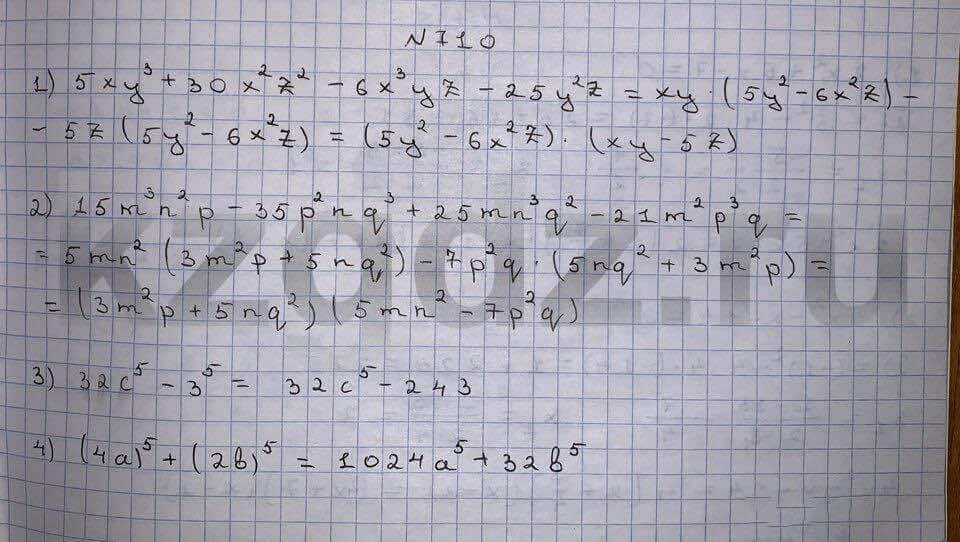 N 710
1) 5xy³ + 30x²z² - 6x³yz - 25y²z = xy · (5y² - 6x²z) -
- 5z (5y² - 6x²z) = (5y² - 6x²z) · (xy - 5z)
2) 15m³n²p - 35p²nq³ + 25mn³q² - 21m²p³q =
= 5mn² (3m²p + 5nq²) - 7p²q · (5nq² + 3m²p) =
= (3m²p + 5nq²) (5mn² - 7p²q)
3) 32c⁵ - 3⁵ = 32c⁵ - 243
4) (4a)⁵ + (2b)⁵ = 1024a⁵ + 32b⁵
kzgdz.ru